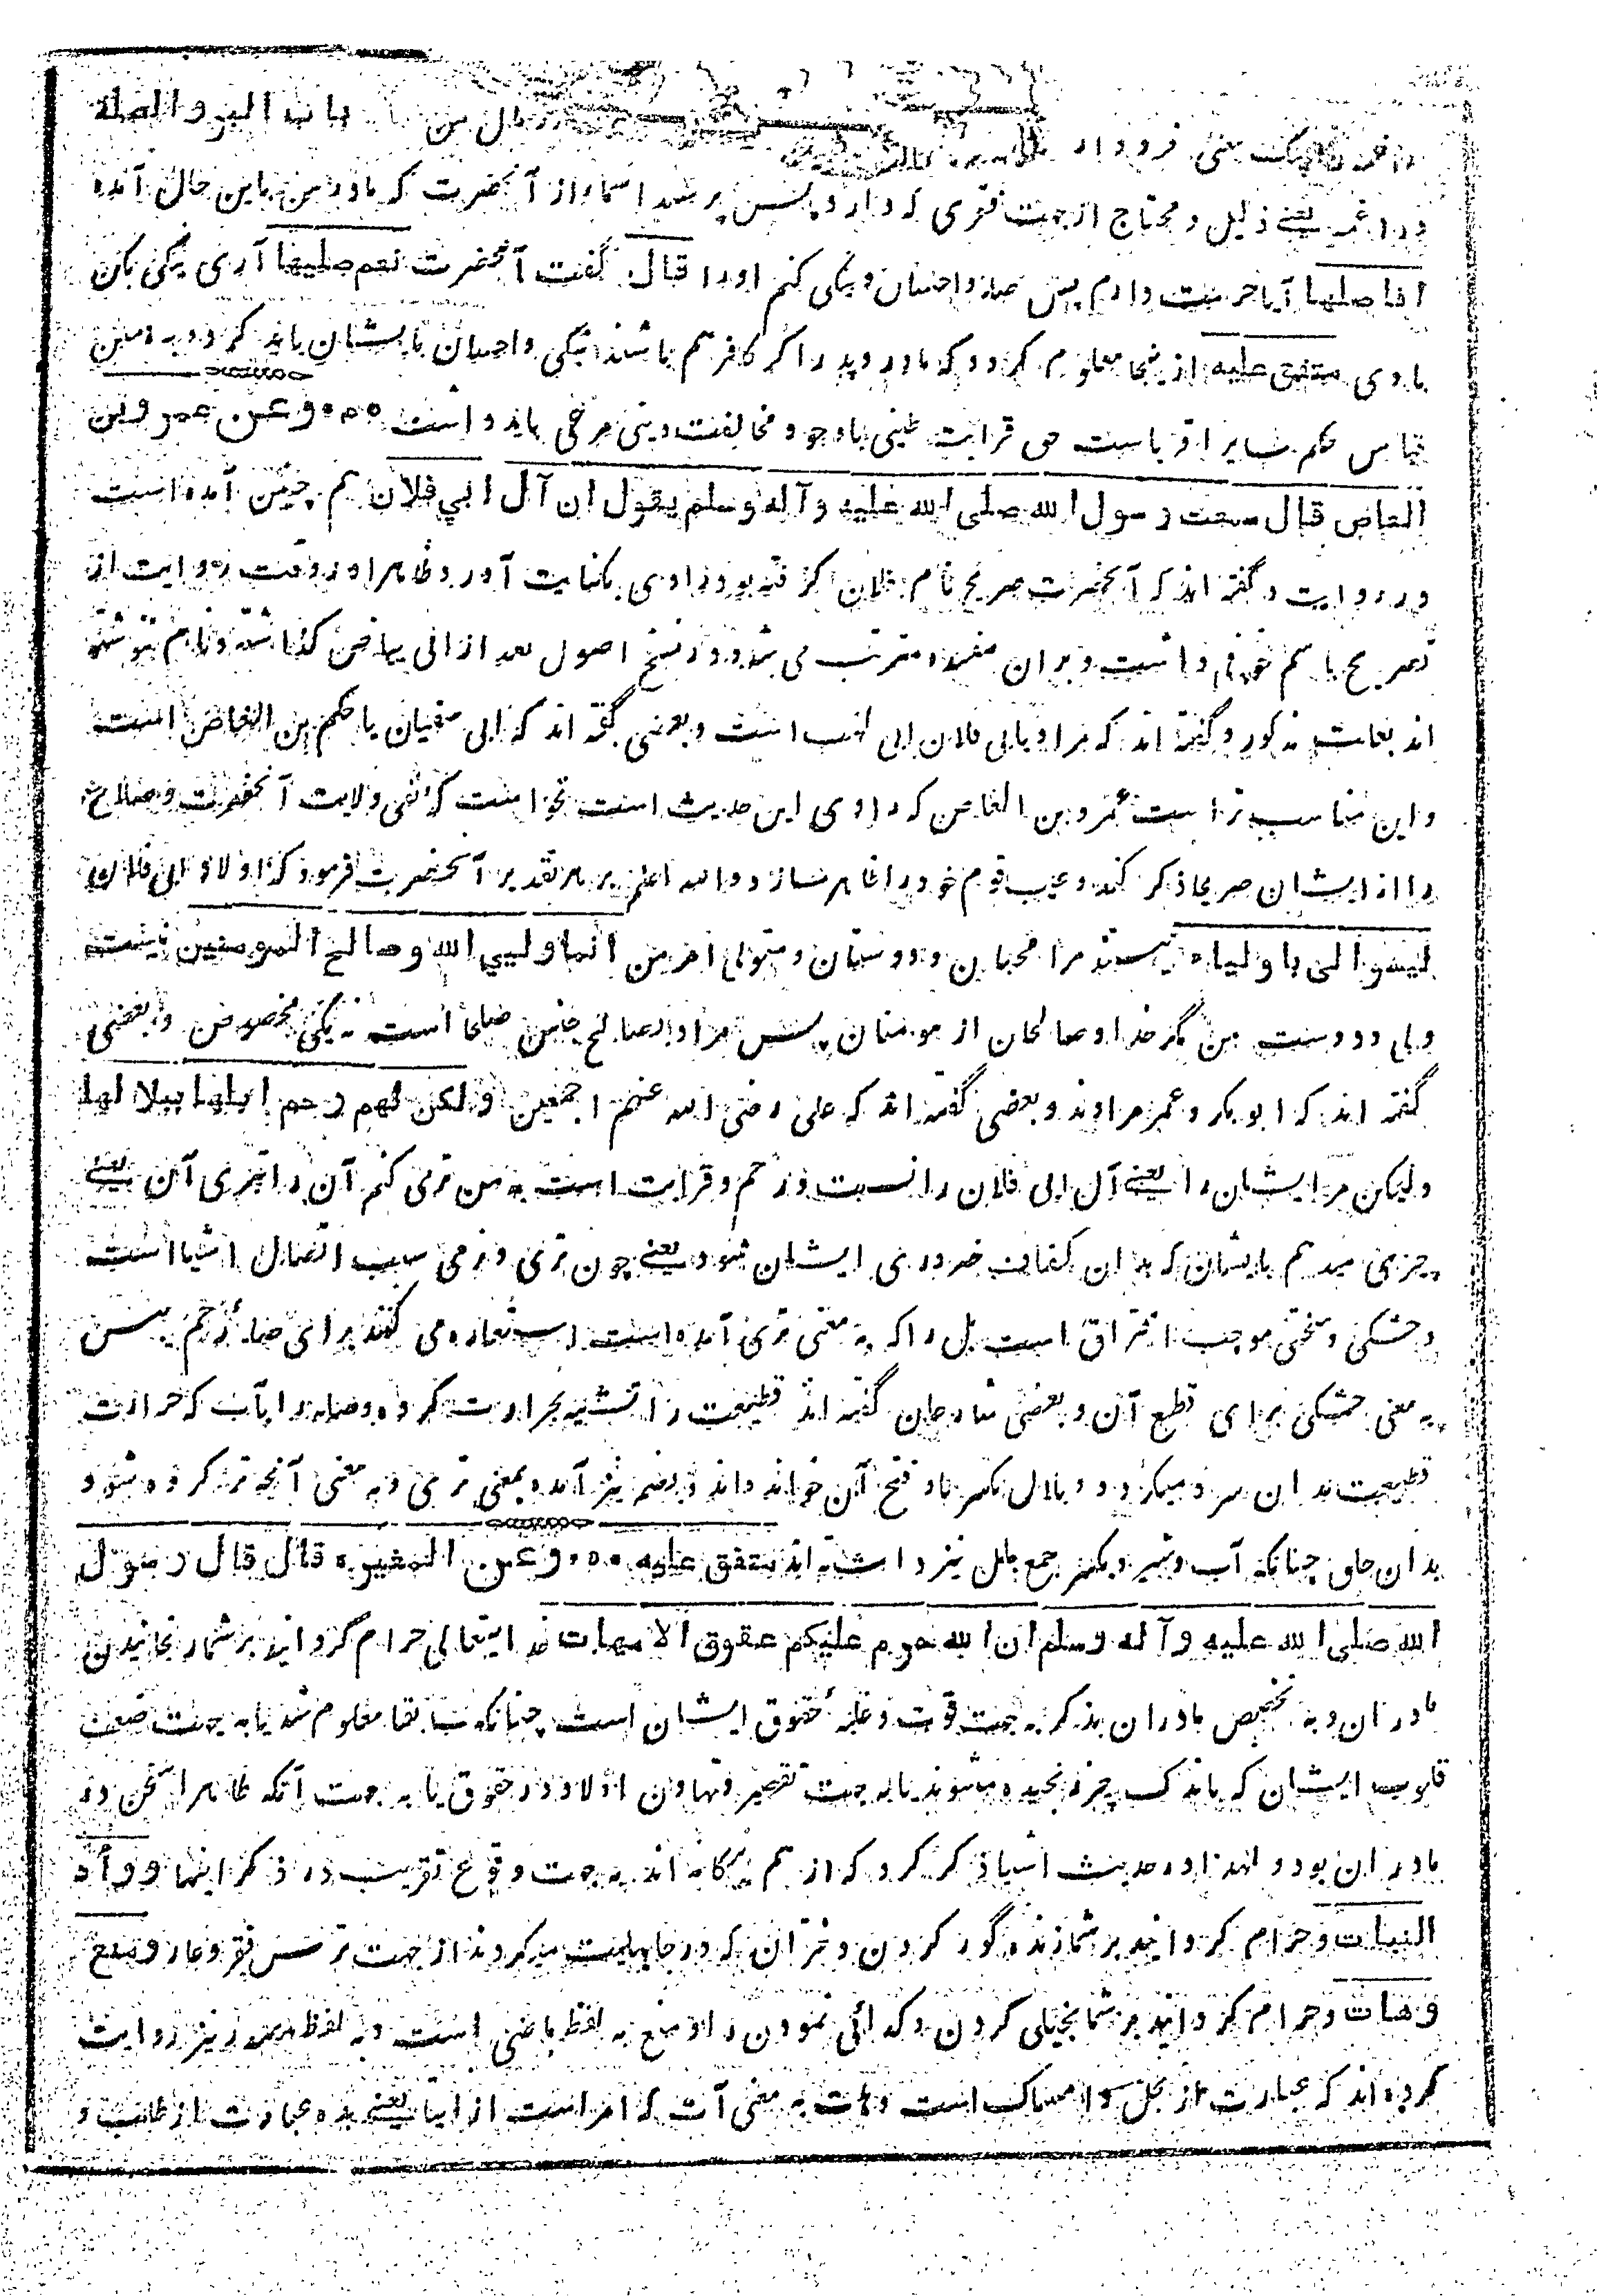 باب البر والصلة
در راغمه یعنے ذلیل و محتاج از جهت فقری که دارد پس پرسید اسما از آنحضرت که مادر من باین حال آمده
افاصلها آیا حرمت دارم پس صله و احسان و نیکی کنم اورا قال گفت آنحضرت نعم صلیها آری نیکی بکن
با وی متفق علیه از ینجا معلوم گردد که مادر و پدر اگر کافر هم باشند نیکی و احسان با یشان باید کرد و به همین
قیاس حکم سایر اقرباست حق قرابت طینی با وجود مخالفت دینی مرعی باید داشت ۰۰۰ وعن عمرو بن
العاص قال سمعت رسول الله صلی الله علیه وآله وسلم یقول ان آل ابي فلان هم چنین آمده است
در روایت و گفته اند که آنحضرت صریح نام فلان گرفته بود راوی بکنایت آورد و ظاهرا در وقت روایت از
تصریح باسم خوفی داشت و بران مفسده مترتب می شد و در نسخ اصول بعد از ابی بیاض گذاشته و نام ننوشته
اند بعلت مذکور و گفته اند که مراد بابی فلان ابی لهب است و بعضی گفته اند که ابی سفیان یا حکم بن العاص است
و این مناسب تر است عمرو بن العاص که راوی این حدیث است نخواست که نفی ولایت آنحضرت و صلاح
را از ایشان صریحا ذکر کند و عیب قوم خود را ظاهر سازد و الله اعلم بر هر تقدیر آنحضرت فرمود که اولاد ابی فلان
لیسوا لی باولیاء نیستند مرا محبان و دوستان و متولی امر من انما ولیي الله وصالح المومنین نیست
ولی و دوست من مگر خدا و صالحان از مومنان پس مراد از صالح جنس صلحا است نه یکی مخصوص و بعضی
گفته اند که ابو بکر و عمر مرادند و بعضی گفته اند که علی رضی الله عنهم اجمعین ولکن لهم رحم ابلها ببلالها
ولیکن مر ایشان را یعنے آل ابی فلان را نسبت و رحم و قرابت است به من تری کنم آن را بتری آن یعنے
چیزی میدهم بایشان که بدان کفایت ضروری ایشان شود یعنے چون تری و نرمی سبب اتصال اشیا است
و خشکی و سختی موجب افتراق است بل را که به معنی تری آمده است استعاره می کنند برای صله رحم یبس
به معنی خشکی برای قطع آن و بعضی شارحان گفته اند قطیعت را تشبیه بحرارت کرده و صله را بآب که حرارت
قطیعت بدان سرد میگردد و بلال بکسر با و فتح آن خوانده اند و بضم نیز آمده بمعنی تری و به معنی آنچه تر کرده شود
بدان حلق چنانکه آب و شیر و بکسر جمع بلل نیز داشته اند متفق علیه ۰۰۰ وعن المغیره قال قال رسول
الله صلی الله علیه وآله وسلم ان الله حرم علیکم عقوق الامهات خدایتعالی حرام گردانید بر شما رنجانیدن
مادران و به تخصیص مادران بذکر به جهت قوت و غلبه حقوق ایشان است چنانکه سابقا معلوم شد یا به جهت ضعف
قلوب ایشان که باندک چیز رنجیده میشوند یا به جهت تقصیر و تهاون اولاد در حقوق یا به جهت آنکه ظاهرا سخن در
مادران بود و لهذا در حدیث اشیا ذکر کرد که از هم بیگانه اند به جهت وقوع تقریب در ذکر اینها ووأد
البنات و حرام گردانید بر شما زنده گور کردن دختران که در جاهلیت میکردند از جهت ترس فقر و عار ومنع
وهات و حرام گردانید بر شما بخیلی کردن و گدائی نمودن را و منع به لفظ ماضی است و به لفظ مصدر نیز روایت
کرده اند که عبارت از بخل و امساک است و هات به معنی آت که امر است از ایتا یعنے بده عبارت از طلب و